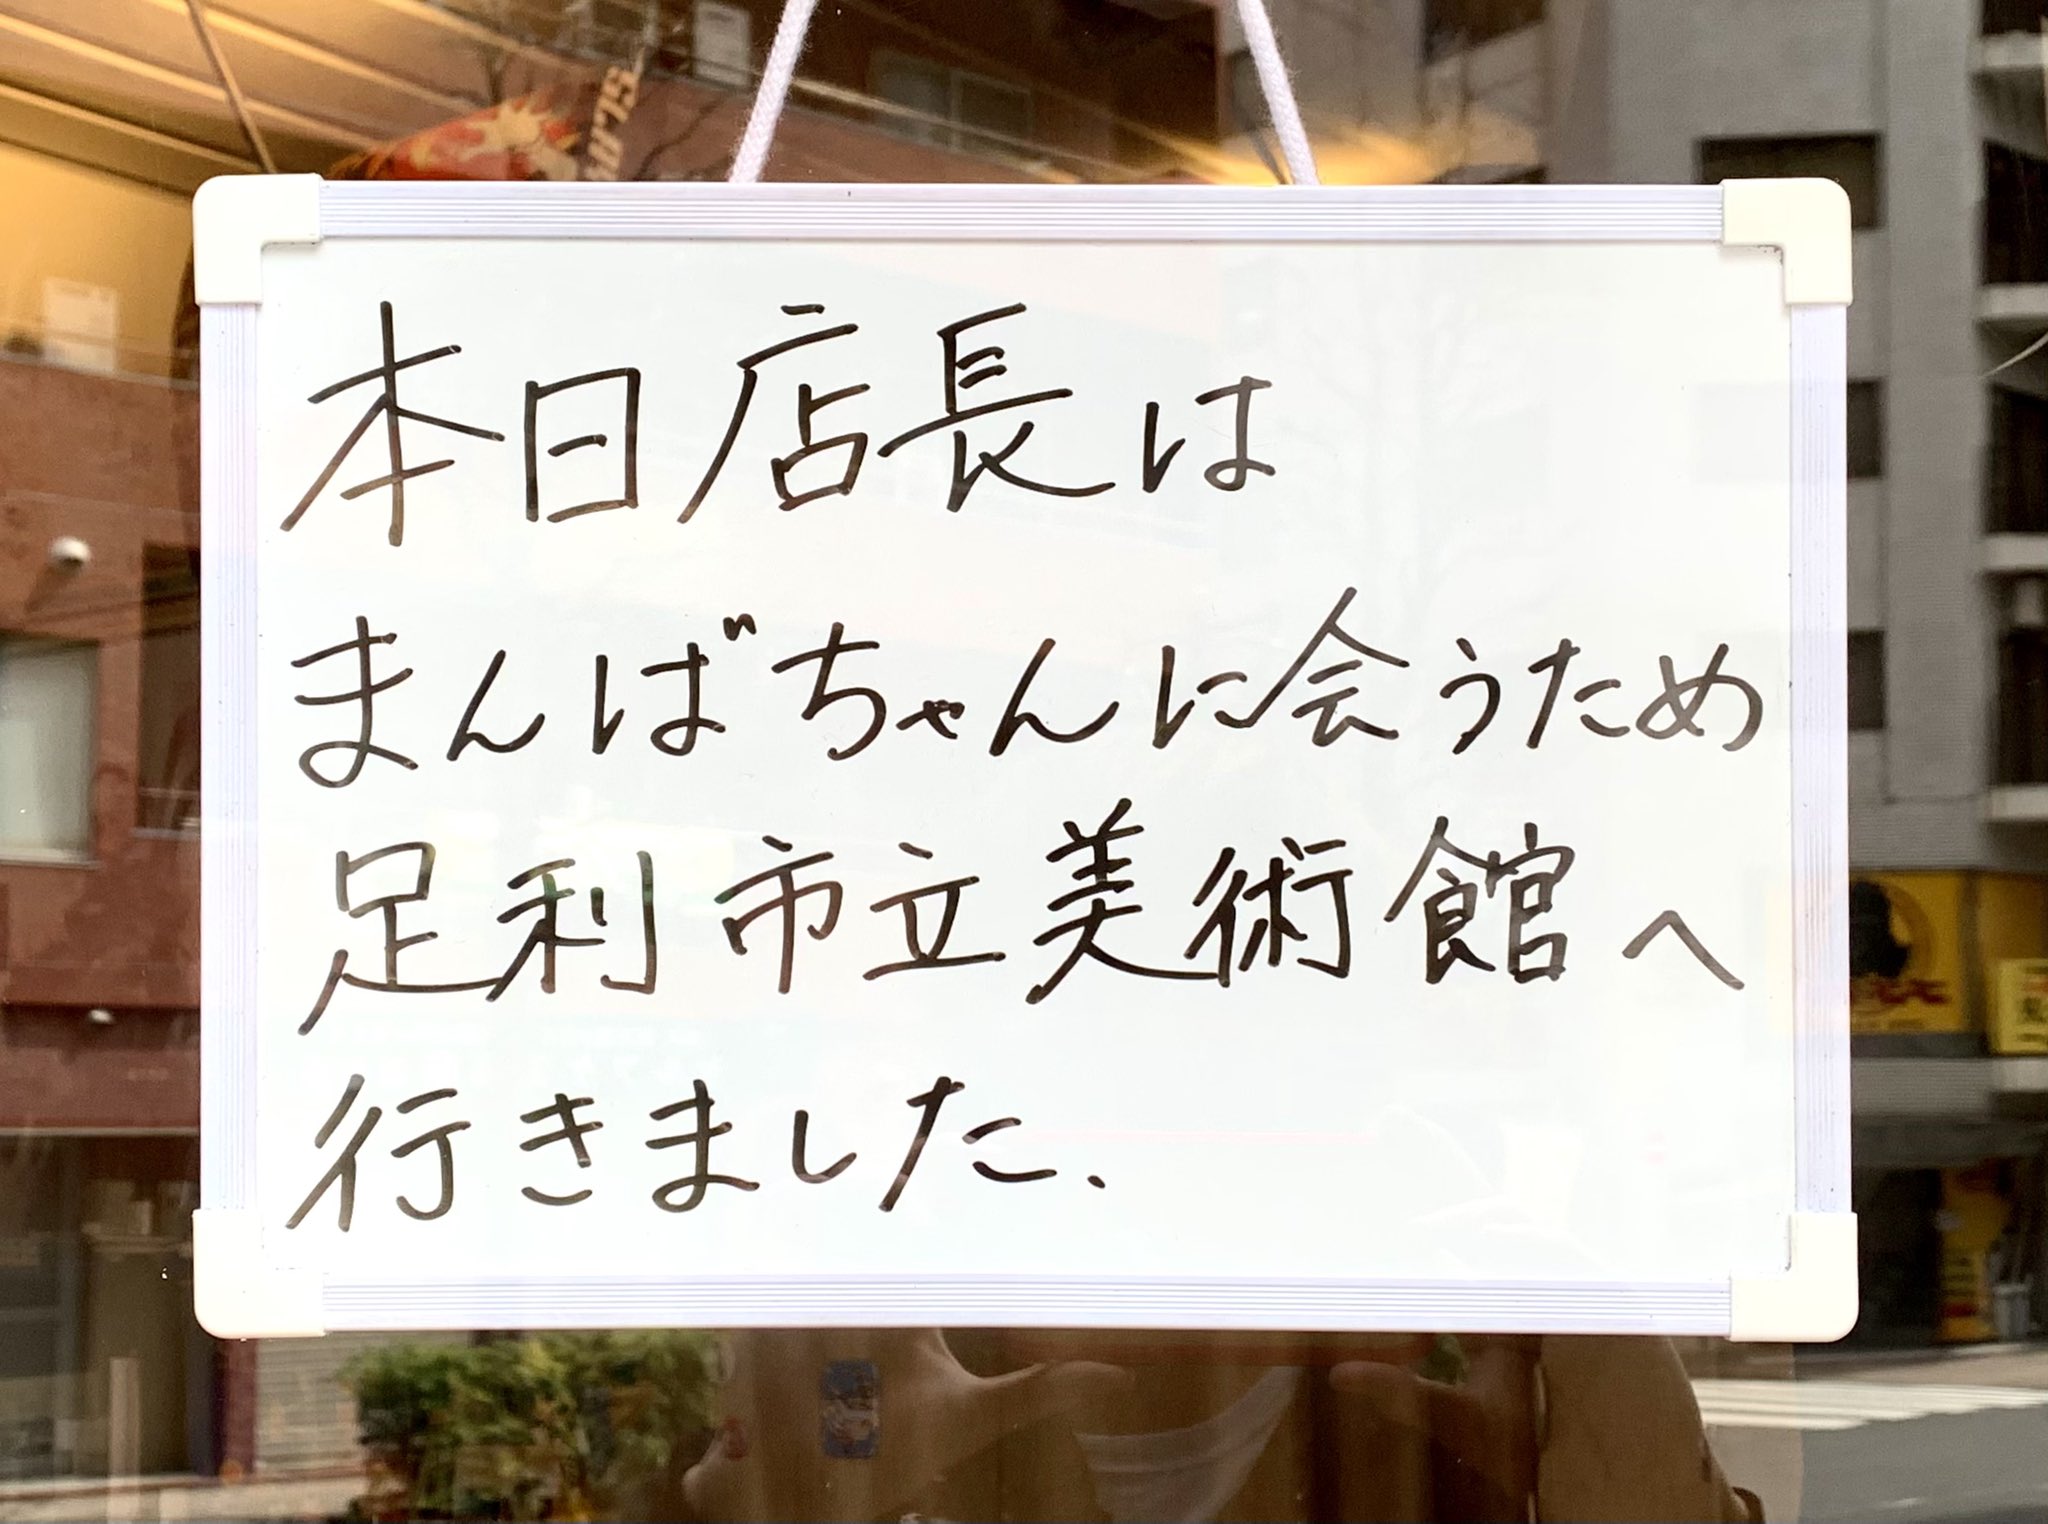 本日店長は
まんばちゃんに会うため
足利市立美術館へ
行きました.